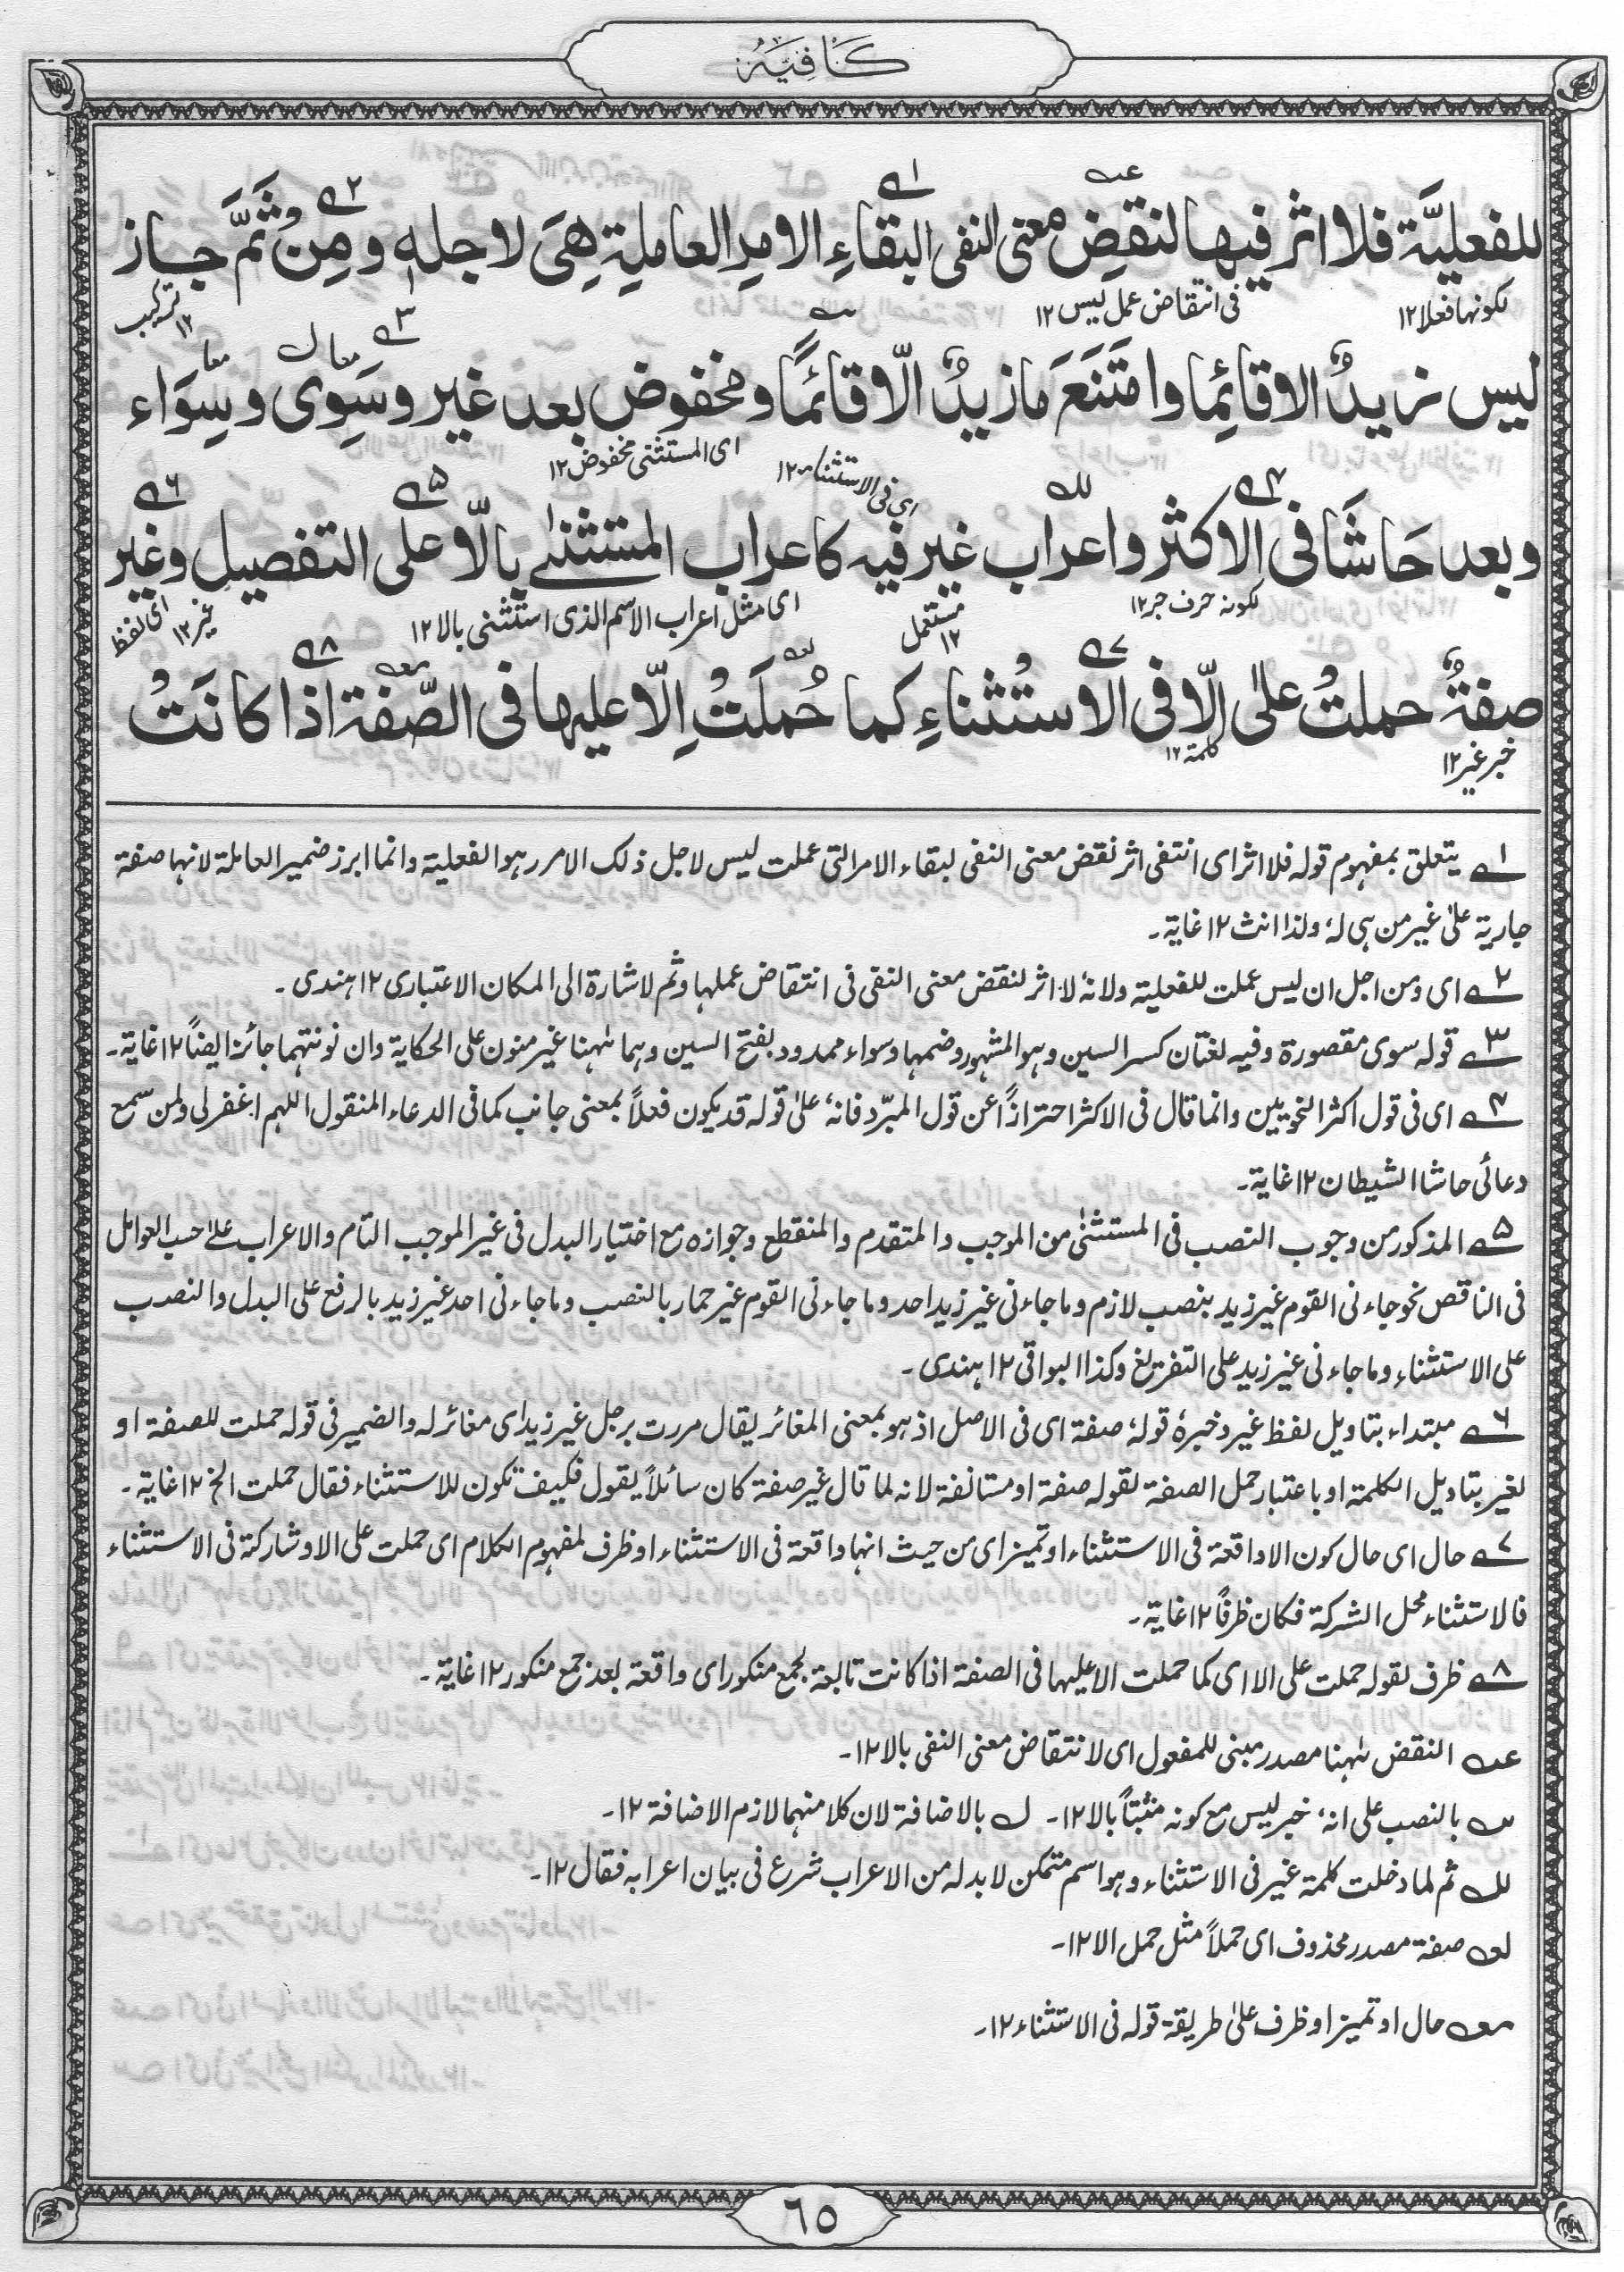 كَافِيَةُ
للفعليَّة فلا اثر فيها لنقضِ معنى النفى لبقاءِ الامرِ العاملةِ هِىَ لاجله ومِنْ ثَمَّ جاز
لكونها فعلا١٢ فى انتقاض عمل ليس ١٢ تركيب ١٢
ليس زيدٌ الا قائِما وامتَنَعَ مازيدٌ الّا قائمًا ومخفوض بعد غير وسَِوى وسِوَاء
اى فى الاستثناء١٢ اى المستثنى مخفوض١٢
وبعد حَاشَا فى الاكثر واعراب غير فيه كاعراب المستثنٰے بالّا على التفصيلِ وغير
لكونه حرف جر١٢ مستعمل ١٢ اى مثل اعراب الاسم الذى استثنى بالا١٢ اى لفظ غير١٢
صفةٌ حملتْ علىٰ الّا فى الاستْثناءِ كما حُملَتْ اِلّا عليها فى الصِّفة اذا كانَتْ
خبر غير١٢ كلمة١٢
١ يتعلق بمفهوم قوله فلا اثر اى انتفى اثر نقض معنى النفى لبقاء الامر التى عملت ليس لاجل ذلك الامر وهو الفعلية وانما ابرز ضمير العاملة لانها صفة
جارية علىٰ غير من هى لهٗ ولذا انث ١٢ غاية۔
٢ اى ومن اجل ان ليس عملت للفعلية ولانهٗ لا اثر لنقض معنى النفى فى انتقاض عملها وثم لاشارة الى المكان الاعتبارى ١٢ ہندى۔
٣ قوله سوى مقصورة وفيه لغتان كسر السين وهو المشهور وضمها وسواء ممدود بفتح السين وهما ههنا غير منون على الحكاية وان نونتهما جائز ايضاً١٢غاية۔
٤ اى فى قول اكثر النحويين وانما قال فى الاكثر احترازاً عن قول المبرّد فانهٗ علىٰ قوله قد يكون فعلاً بمعنى جانب كما فى الدعاء المنقول اللهم اغفرلى ولمن سمع
دعائى حاشا الشيطان ١٢ غاية۔
٥ المذكور من وجوب النصب فى المستثنٰى من الموجب والمتقدم والمنقطع وجوازه مع اختيار البدل فى غير الموجب التام والاعراب علےٰ حسب العوامل
فى الناقص نحو جاءنى القوم غير زيد بنصب لازم وما جاءنى غير زيد احد وما جاءنى القوم غير حمار بالنصب وما جاءنى احد غير زيد بالرفع على البدل والنصب
على الاستثناء وما جاءنى غير زيد على التفريغ وكذا البواقى ١٢ ہندى۔
٦ مبتداء بتاويل لفظ غير وخبرهٗ قولهٗ صفة اى فى الاصل اذ هو بمعنى المغائر يقال مررت برجل غير زيد اى مغائر له والضمير فى قوله حملت للصفة او
لغير بتاويل الكلمة او باعتبار حمل الصفة لقوله صفة او مستانفة لانه لما قال غير صفة كان سائلاً يقول فكيف تكون للاستثناء فقال حملت الخ ١٢ غاية۔
٧ حال اى حال كون الا واقعة فى الاستثناء او تميز اى من حيث انها واقعة فى الاستثناء او ظرف لمفهوم الكلام اى حملت على الا وشاركته فى الاستثناء
فالاستثناء محل الشركة فكان ظرفاً ١٢ غاية۔
٨ ظرف لقوله حملت على الا اى كما حملت الا عليها فى الصفة اذا كانت تابعة لجمع منكور اى واقعة بعد جمع منكور ١٢ غاية۔
عه النقض ههنا مصدر مبنى للمفعول اى لانتقاض معنى النفى بالا١٢۔
بالنصب على انهٗ خبر ليس مع كونه مثبتاً بالا١٢۔ بالاضافة لان كلا منهما لازم الاضافة ١٢۔
ثم لما دخلت كلمة غير فى الاستثناء وهو اسم متمكن لا بد له من الاعراب شرع فى بيان اعرابه فقال ١٢۔
صفة مصدر محذوف اى حملاً مثل حمل الا١٢۔
حال او تميز او ظرف علىٰ طريقة قوله فى الاستثناء ١٢۔
٦٥